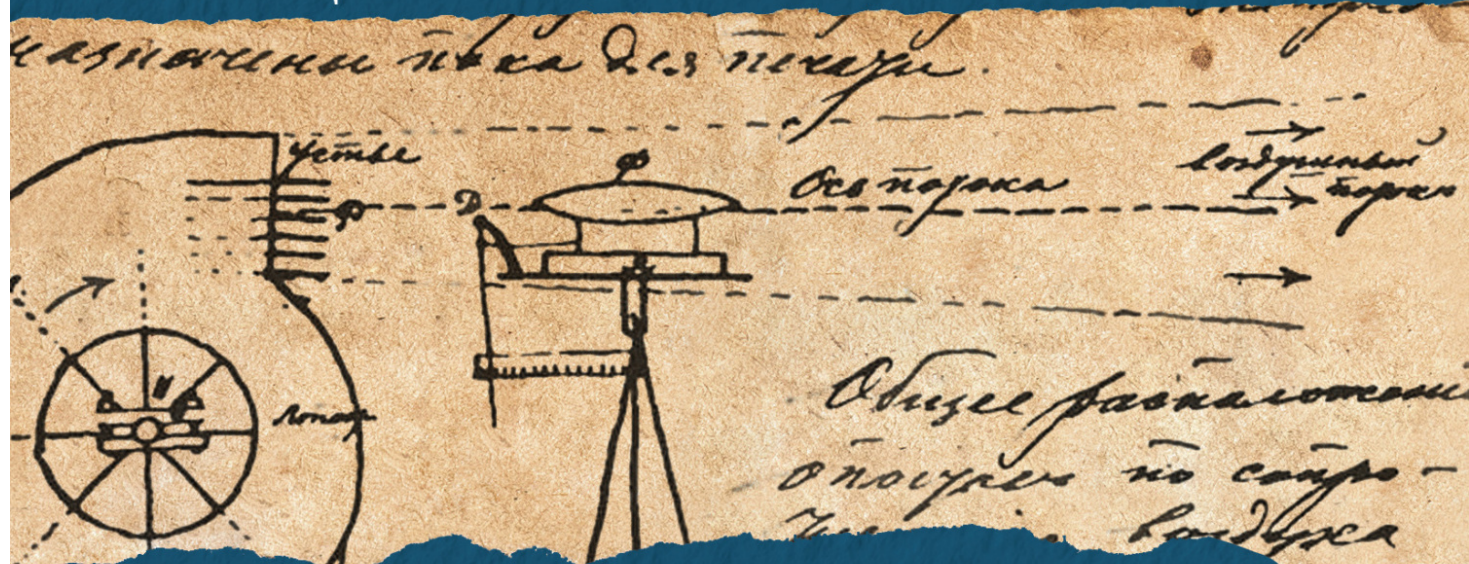 назначены пока для печати.
устье
Ф
Ф
D
Ось потока
воздушный
поток
лопасть
Общее расположение
опытов по сопро-
воздуха